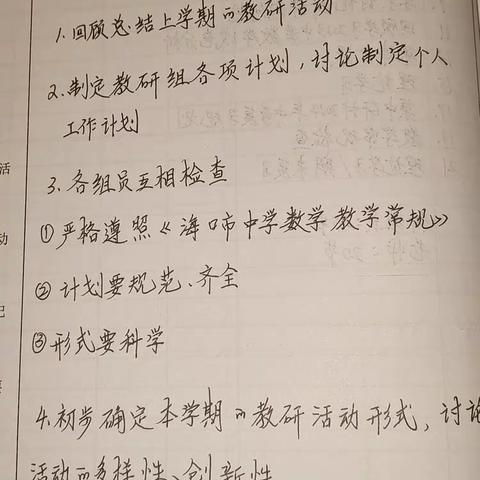 1.回顾总结上学期的教研活动
2.制定教研组各项计划,讨论制定个人
工作计划
3.各组员互相检查
①严格遵照《海口市中学数学教学常规》
②计划要规范、齐全
③形式要科学
4.初步确定本学期的教研活动形式,讨论
活动的多样性、创新性
活
动
记